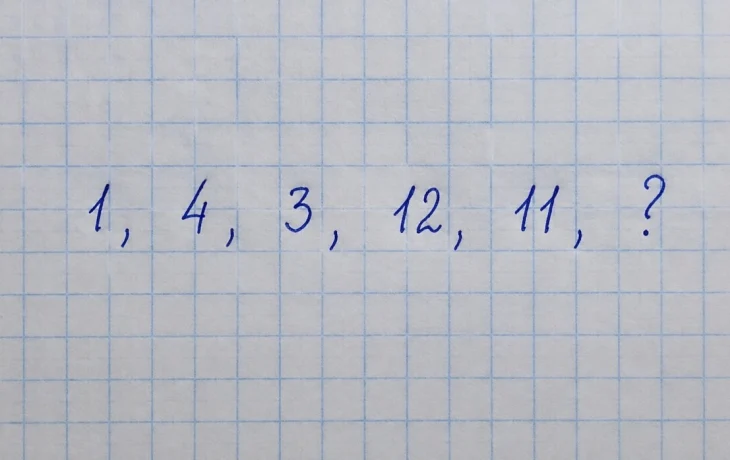 1, 4, 3, 12, 11, ?